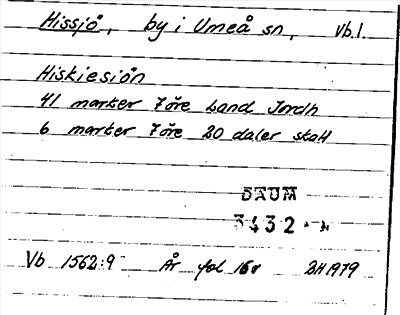 Hissjö, by i Umeå sn, Vb.l.
Hiskiesiön
41 marker 7 öre Land Jordh
6 marker 7 öre 20 daler skatt
DAUM
3432
Vb 1562:9 År fol 16v BH 1979